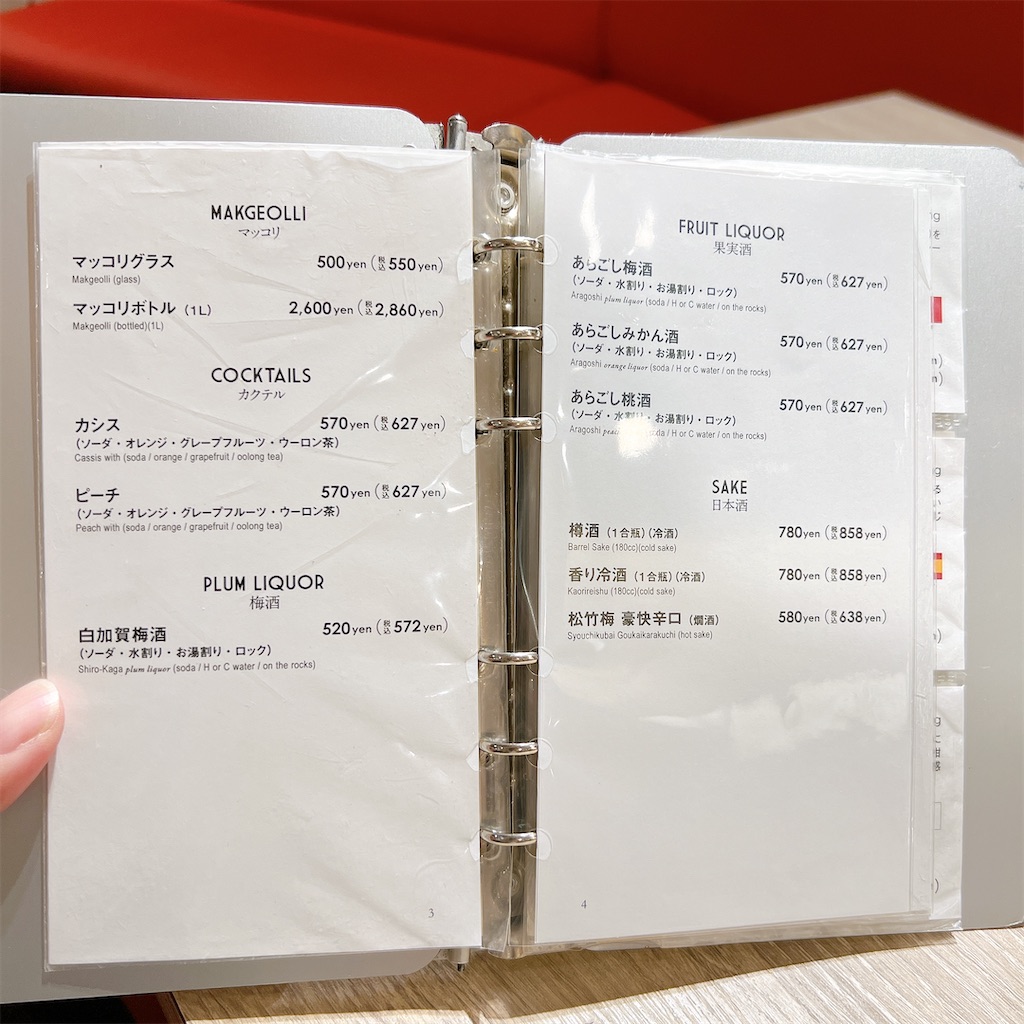 MAKGEOLLI
マッコリ
マッコリグラス 500yen (税込550yen)
Makgeolli (glass)
マッコリボトル (1L) 2,600yen (税込2,860yen)
Makgeolli (bottled)(1L)
COCKTAILS
カクテル
カシス 570yen (税込627yen)
(ソーダ・オレンジ・グレープフルーツ・ウーロン茶)
Cassis with (soda / orange / grapefruit / oolong tea)
ピーチ 570yen (税込627yen)
(ソーダ・オレンジ・グレープフルーツ・ウーロン茶)
Peach with (soda / orange / grapefruit / oolong tea)
PLUM LIQUOR
梅酒
白加賀梅酒 520yen (税込572yen)
(ソーダ・水割り・お湯割り・ロック)
Shiro-Kaga plum liquor (soda / H or C water / on the rocks)
3
FRUIT LIQUOR
果実酒
あらごし梅酒 570yen (税込627yen)
(ソーダ・水割り・お湯割り・ロック)
Aragoshi plum liquor (soda / H or C water / on the rocks)
あらごしみかん酒 570yen (税込627yen)
(ソーダ・水割り・お湯割り・ロック)
Aragoshi orange liquor (soda / H or C water / on the rocks)
あらごし桃酒 570yen (税込627yen)
(ソーダ・水割り・お湯割り・ロック)
Aragoshi / H or C water / on the rocks)
SAKE
日本酒
樽酒 (1合瓶)(冷酒) 780yen (税込858yen)
Barrel Sake (180cc)(cold sake)
香り冷酒 (1合瓶)(冷酒) 780yen (税込858yen)
Kaorireishu (180cc)(cold sake)
松竹梅 豪快辛口 (燗酒) 580yen (税込638yen)
Syouchikubai Goukaikarakuchi (hot sake)
4